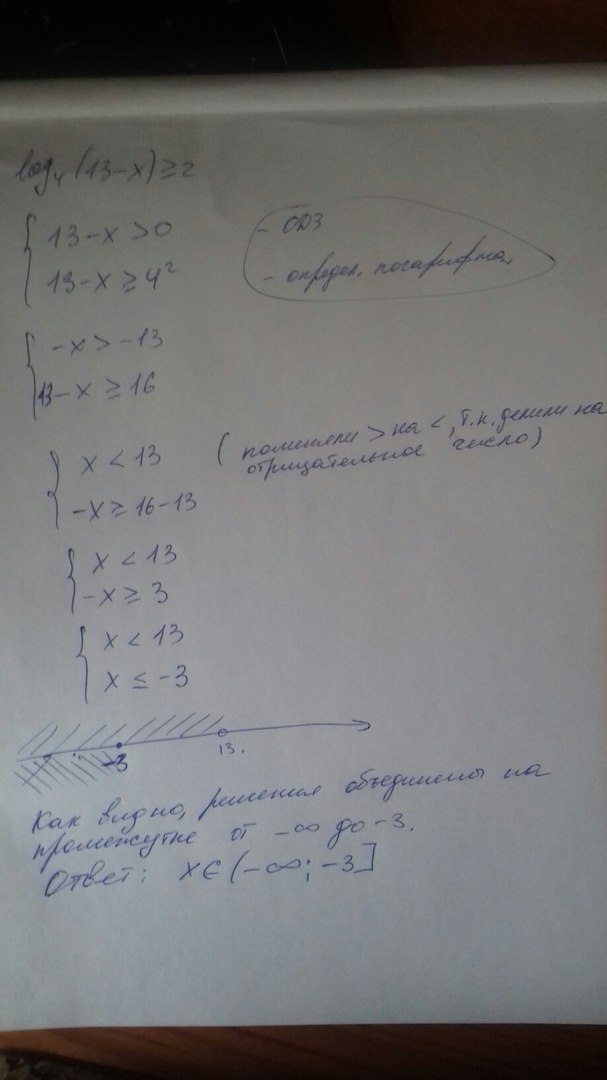 log₄(13-x)≥2
{ 13-x>0 - ОДЗ
{ 13-x≥4² - определ. логарифма.
{ -x>-13
{ 13-x≥16
{ x<13 (поменяли > на <, т.к. делили на
отрицательное число)
{ -x≥16-13
{ x<13
{ -x≥3
{ x<13
{ x≤-3
-3 13.
Как видно, решения объединены на
промежутке от -∞ до -3.
Ответ: x∈(-∞;-3]